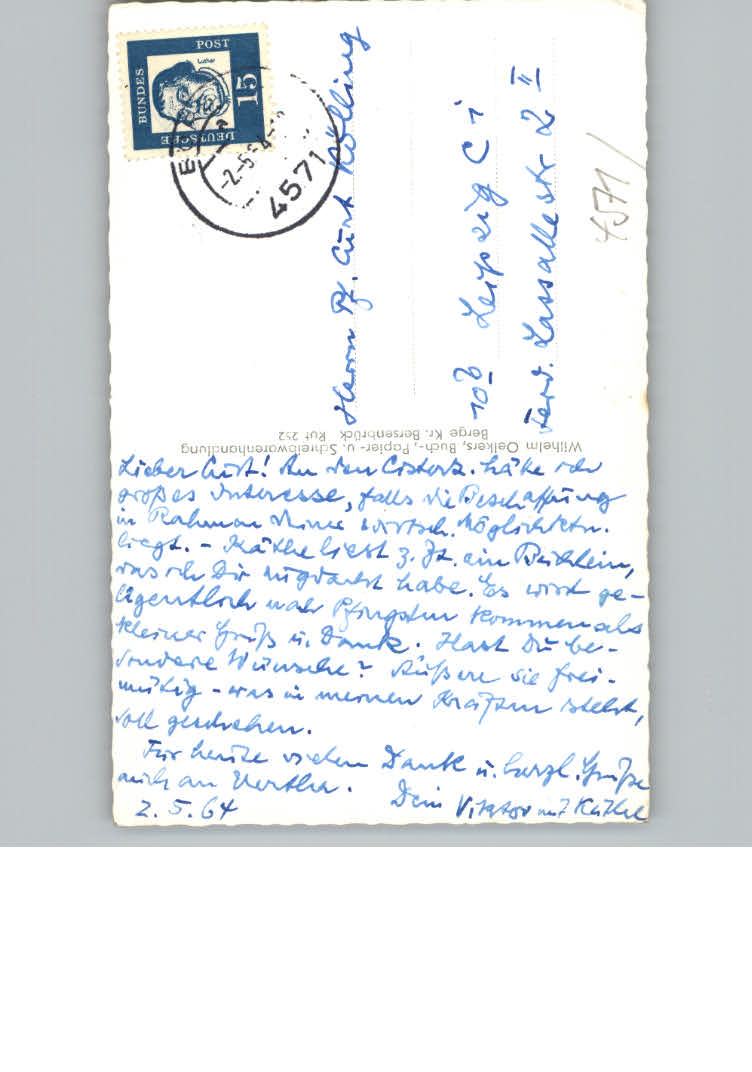 DEUTSCHE
BUNDES
POST
Luther
15
-2.-5.64
4571
Herrn Pf. Curt Kölling
10b Leipzig C 1
Ferd. Lassallestr 2 II
4571/
Wilhelm Oelkers, Buch-, Papier- u. Schreibwarenhandlung
Berge Kr. Bersenbrück Ruf 252
Lieber Curt! An den Cisterz. hätte ich
großes Interesse, falls die Beschaffung
im Rahmen Deiner wirtsch. Möglichktn.
liegt. – Käthe liest z. Zt. ein Büchlein,
was ich Dir zugdacht habe. Es wird ge-
legentlich nach Pfingsten kommen als
kleiner Gruß u. Dank. Hast Du be-
sondere Wünsche? Äußere sie frei-
mütig – was in meinen Kräften steht,
soll geschehen.
Für heute vielen Dank u. herzl. Grüße
auch an Hertha.
Dein Viktor mit Käthe
2.5.64